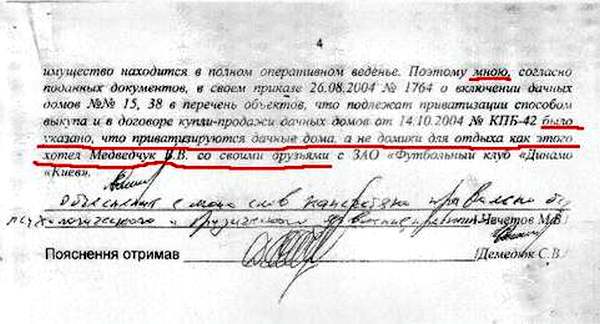 4
имущество находится в полном оперативном веденье. Поэтому мною, согласно
поданных документов, в своем приказе 26.08.2004 № 1764 о включении дачных
домов №№ 15, 38 в перечень объектов, что подлежат приватизации способом
выкупа и в договоре купли-продажи дачных домов от 14.10.2004 № КПБ-42 было
указано, что приватизируются дачные дома, а не домики для отдыха как этого
хотел Медведчук В.В. со своими друзьями с ЗАО «Футбольный клуб «Динамо
«Киев».
Объяснения с моих слов напечатано правильно без
психологического и физического Чечетов М.В.
Пояснення отримав Демедюк С.В.